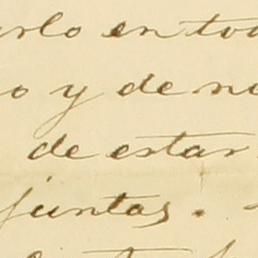 arlo en tod
o y de no
de estar
juntas.